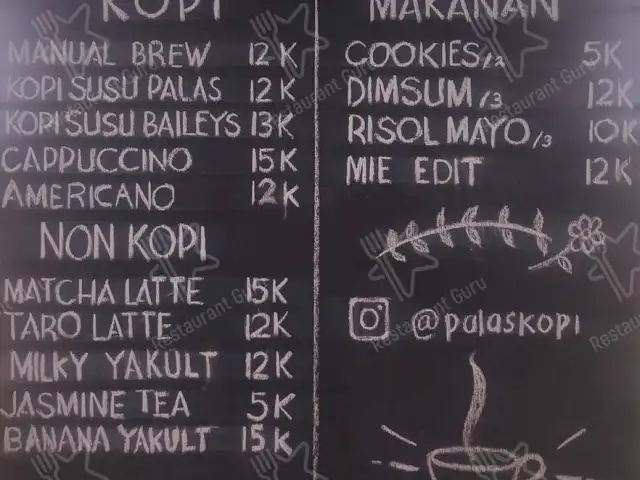 KOPI
MANUAL BREW 12K
KOPI SUSU PALAS 12K
KOPI SUSU BAILEYS 13K
CAPPUCCINO 15K
AMERICANO 12K
NON KOPI
MATCHA LATTE 15K
TARO LATTE 12K
MILKY YAKULT 12K
JASMINE TEA 5K
BANANA YAKULT 15K
MAKANAN
COOKIES /2 5K
DIMSUM /3 12K
RISOL MAYO /3 10K
MIE EDIT 12K
@palaskopi
Restaurant Guru
Restaurant Guru
Restaurant Guru
Restaurant Guru
Restaurant Guru
Restaurant Guru